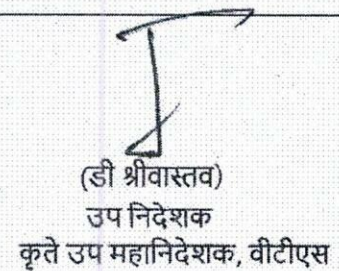 (डी श्रीवास्तव)
उप निदेशक
कृते उप महानिदेशक, वीटीएस